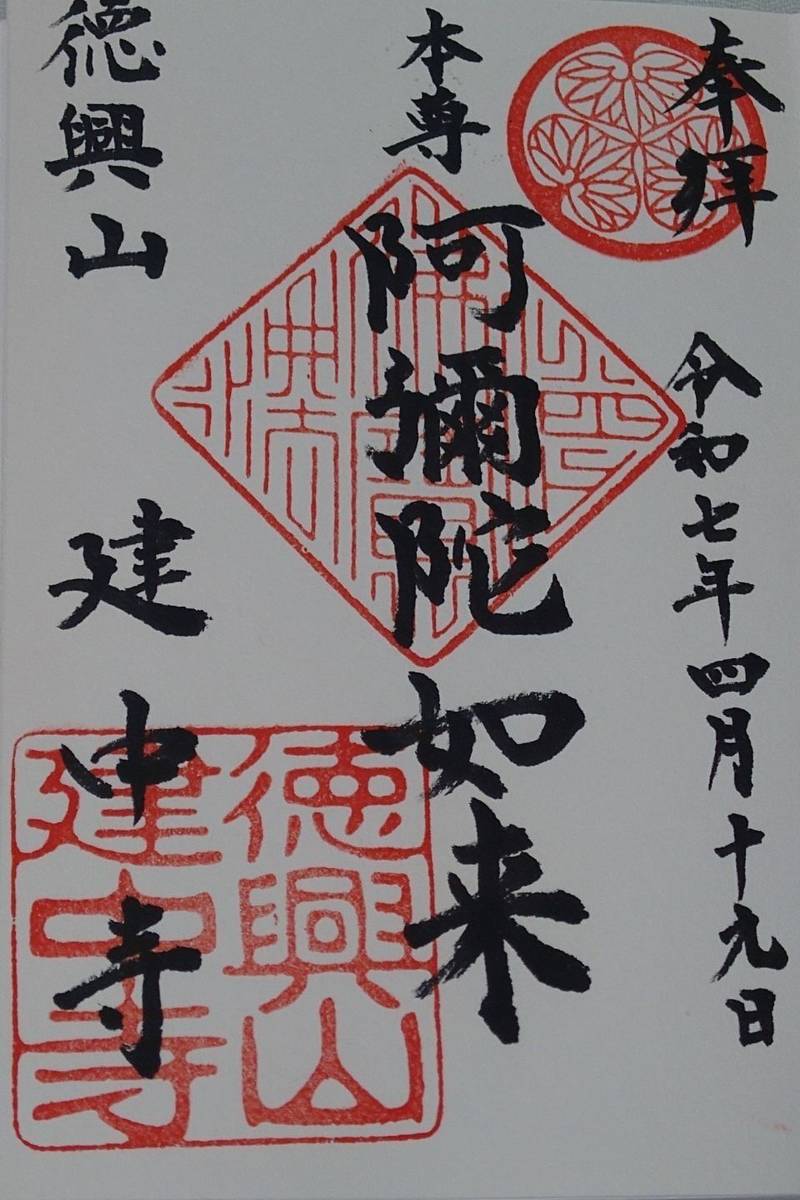 奉拝
令和七年四月十九日
本尊
阿彌陀如来
徳興山
建中寺
徳興山
建中寺